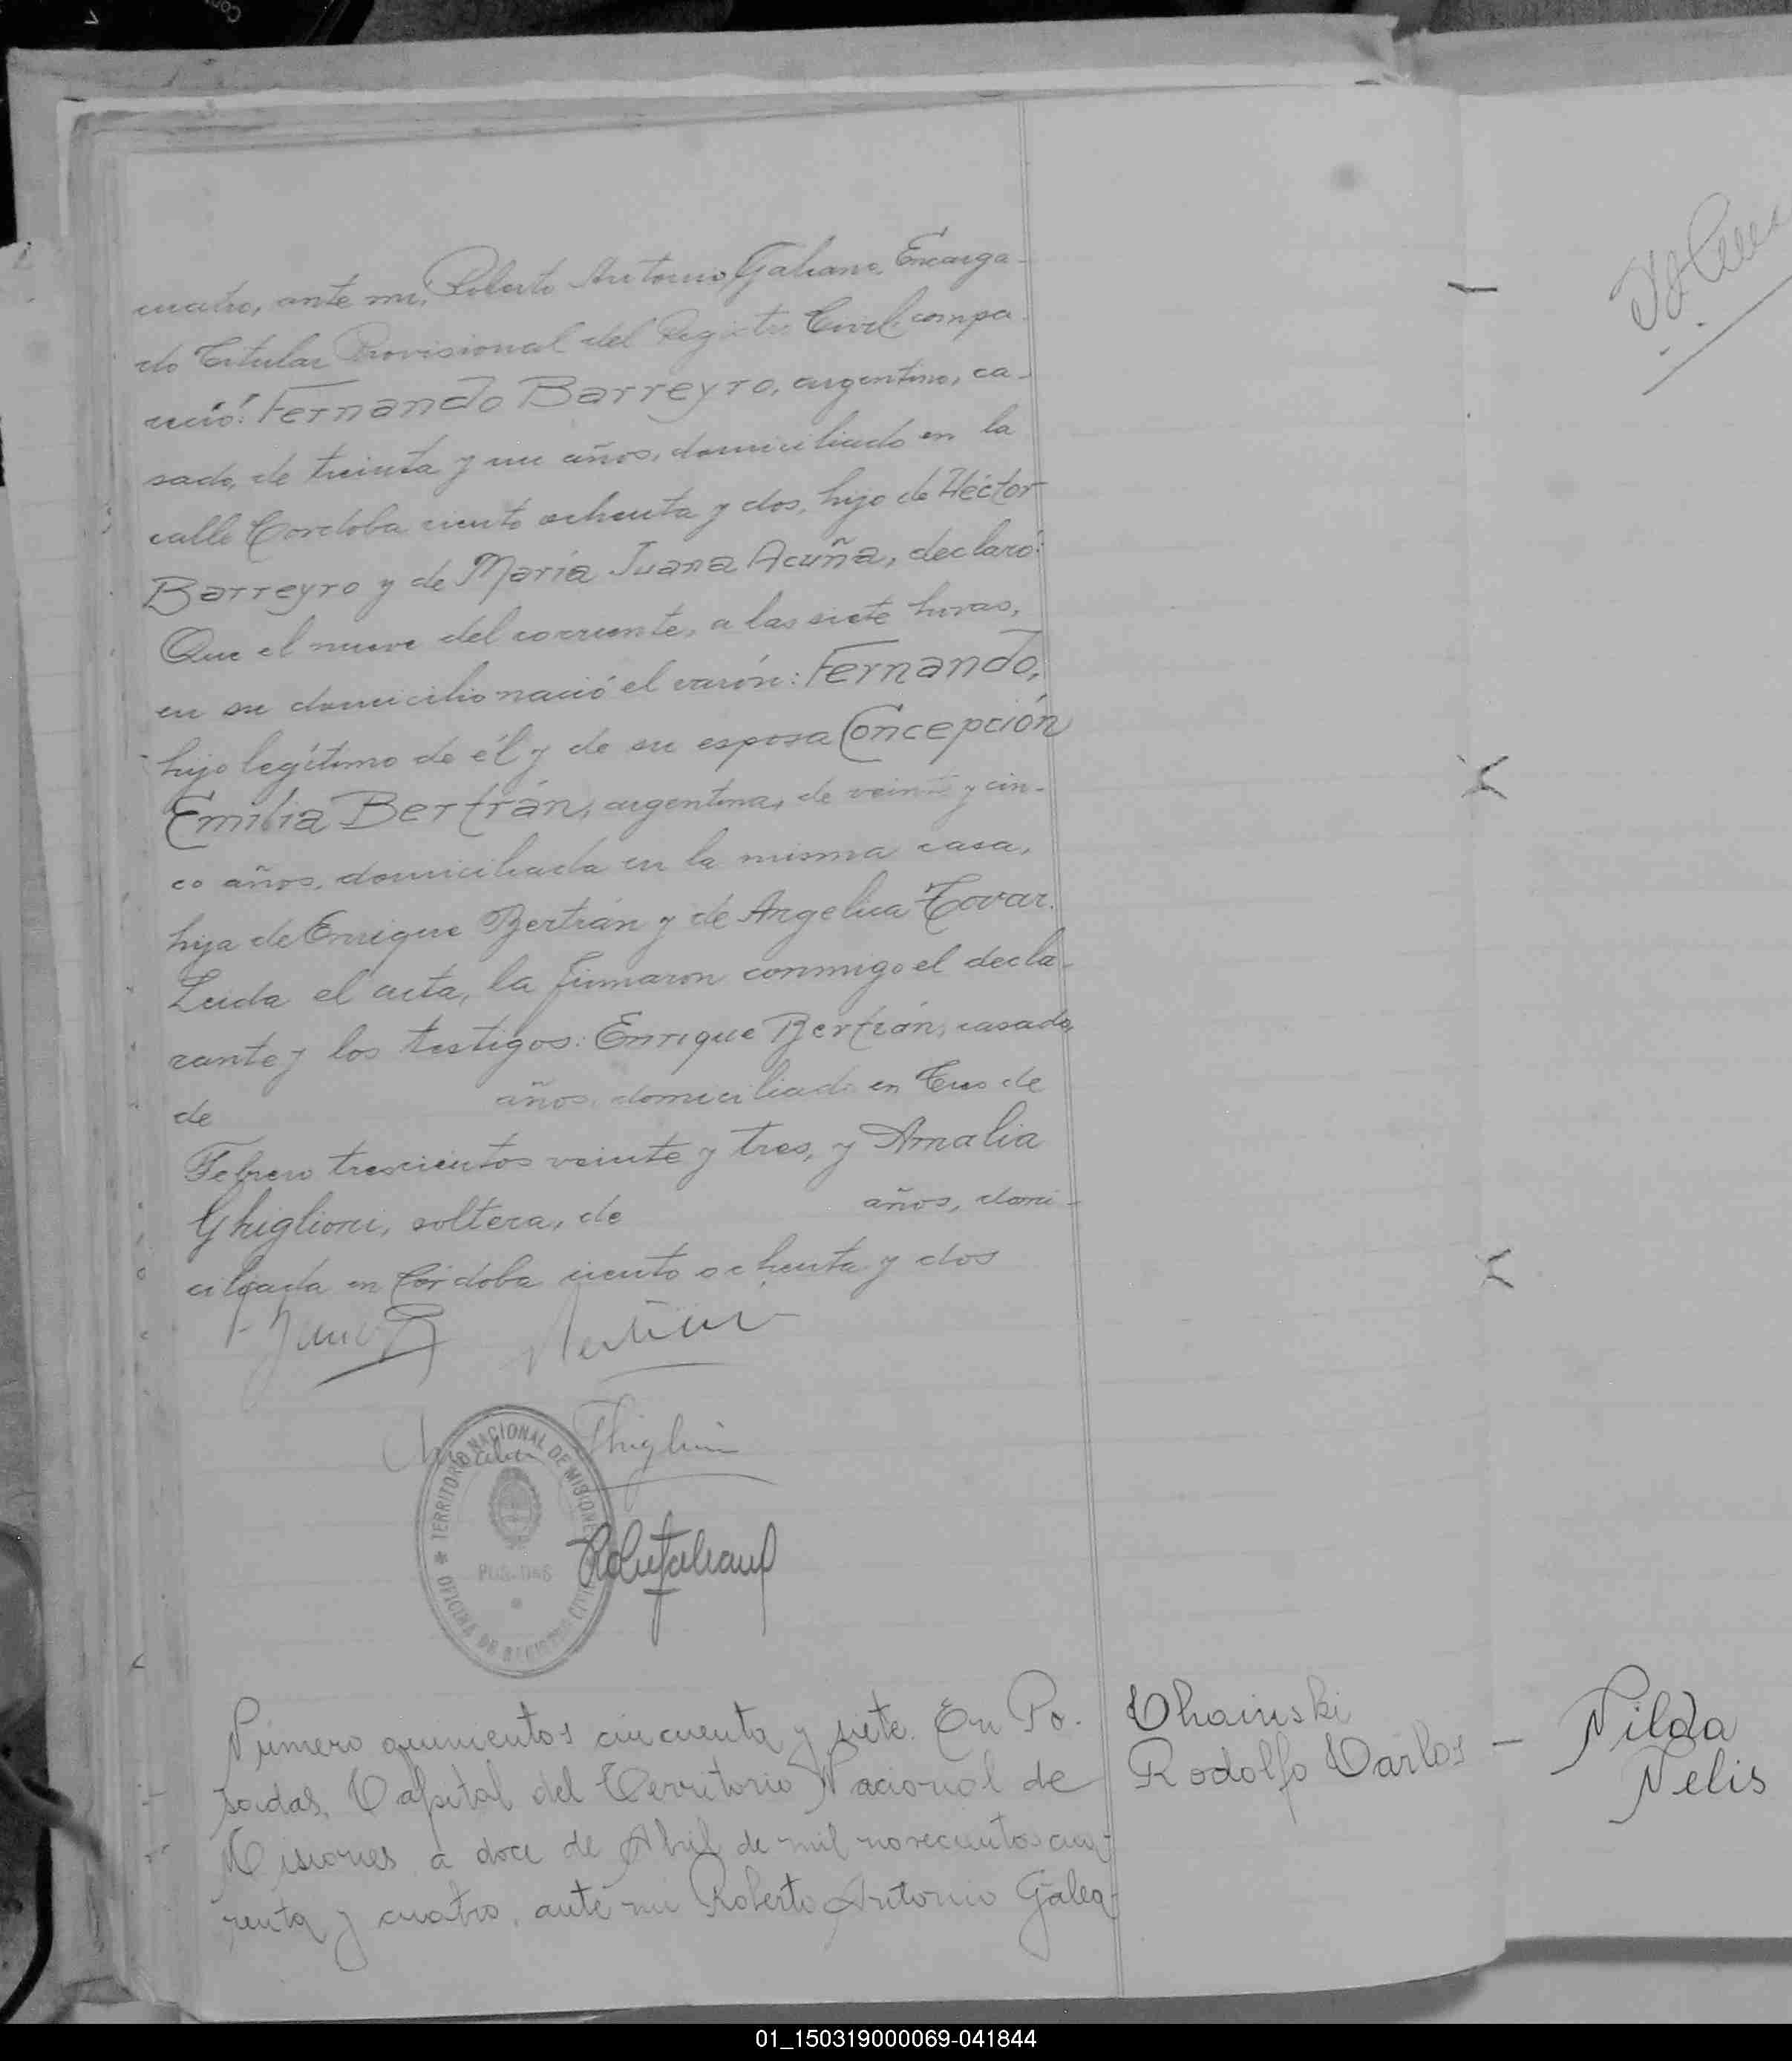 cuatro, ante mi, Roberto Antonio Galeano, Encarga-
do Titular Provisional del Registro Civil, compa-
reció: Fernando Barreyro, argentino, ca-
sado, de treinta y un años, domiciliado en la
calle Cordoba ciento ochenta y dos, hijo de Héctor
Barreyro y de María Juana Acuña, declaró:
Que el nueve del corriente, a las siete horas,
en su domicilio nació el varón: Fernando,
hijo legítimo de él y de su esposa Concepción
Emilia Bertrán, argentina, de veinte y cin-
co años, domiciliada en la misma casa,
hija de Enrique Bertrán y de Argelica Tovar.
Leida el acta, la firmaron conmigo el decla-
rante y los testigos: Enrique Bertrán, casado,
de años, domiciliado en Tres de
Febrero trescientos veinte y tres, y Amalia
Ghiglioni, soltera, de años, domi-
ciliada en Córdoba ciento ochenta y dos
TERRITORIO NACIONAL DE MISIONES
POSADAS
OFICINA DE REGISTRO CIVIL
Número quinientos cincuenta y siete. En Po-
sadas, Capital del Territorio Nacional de
Misiones a doce de Abril de mil novecientos cua-
renta y cuatro, ante mi Roberto Antonio Galea-
Rodolfo Carlos
Nilda
Nelis
01_150319000069-041844